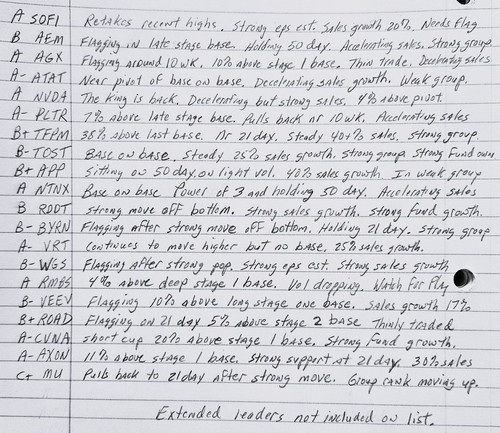 A SOFI Retakes recent highs. Strong eps est. Sales growth 20%. Needs flag
B AEM Flagging in late stage base. Holding 50 day. Accelerating sales. Strong group.
A AGX Flagging around 10 wk. 10% above stage 1 base. Thin trade. Decelerating sales
A- ATAT Near pivot of base on base. Decelerating sales growth. Weak group.
A NVDA The king is back. Decelerating but strong sales. 4% above pivot.
A- PLTR 7% above late stage base. Pulls back nr 10 wk. Accelerating sales
B+ TFPM 38% above last base. Nr 21 day. Steady 40+% sales. Strong group.
B- TOST Base on base. Steady 25% sales growth. Strong group. Strong Fund own
B+ APP Sitting on 50 day on light vol. 40% sales growth. In weak group
A NTNX Base on base Power of 3 and holding 50 day. Accelerating sales
B RDDT Strong move off bottom. Strong sales growth. Strong fund growth.
B- BYRN Flagging after strong move off bottom. Holding 21 day. Strong group
A- VRT Continues to move higher but no base. 25% sales growth.
B- WGS Flagging after strong pop. Strong eps est. Strong sales growth
A RMBS 4% above deep stage 1 base. Vol dropping. Watch for Play
B- VEEV Flagging 10% above long stage one base. Sales growth 17%
B+ ROAD Flagging on 21 day 5% above stage 2 base Thinly traded
A- CVNA Short cup 20% above stage 1 base. Strong Fund growth.
A- AXON 11% above stage 1 base. Strong support at 21 day. 30% sales
C+ MU Pulls back to 21 day after strong move. Group rank moving up.
Extended leaders not included on list.